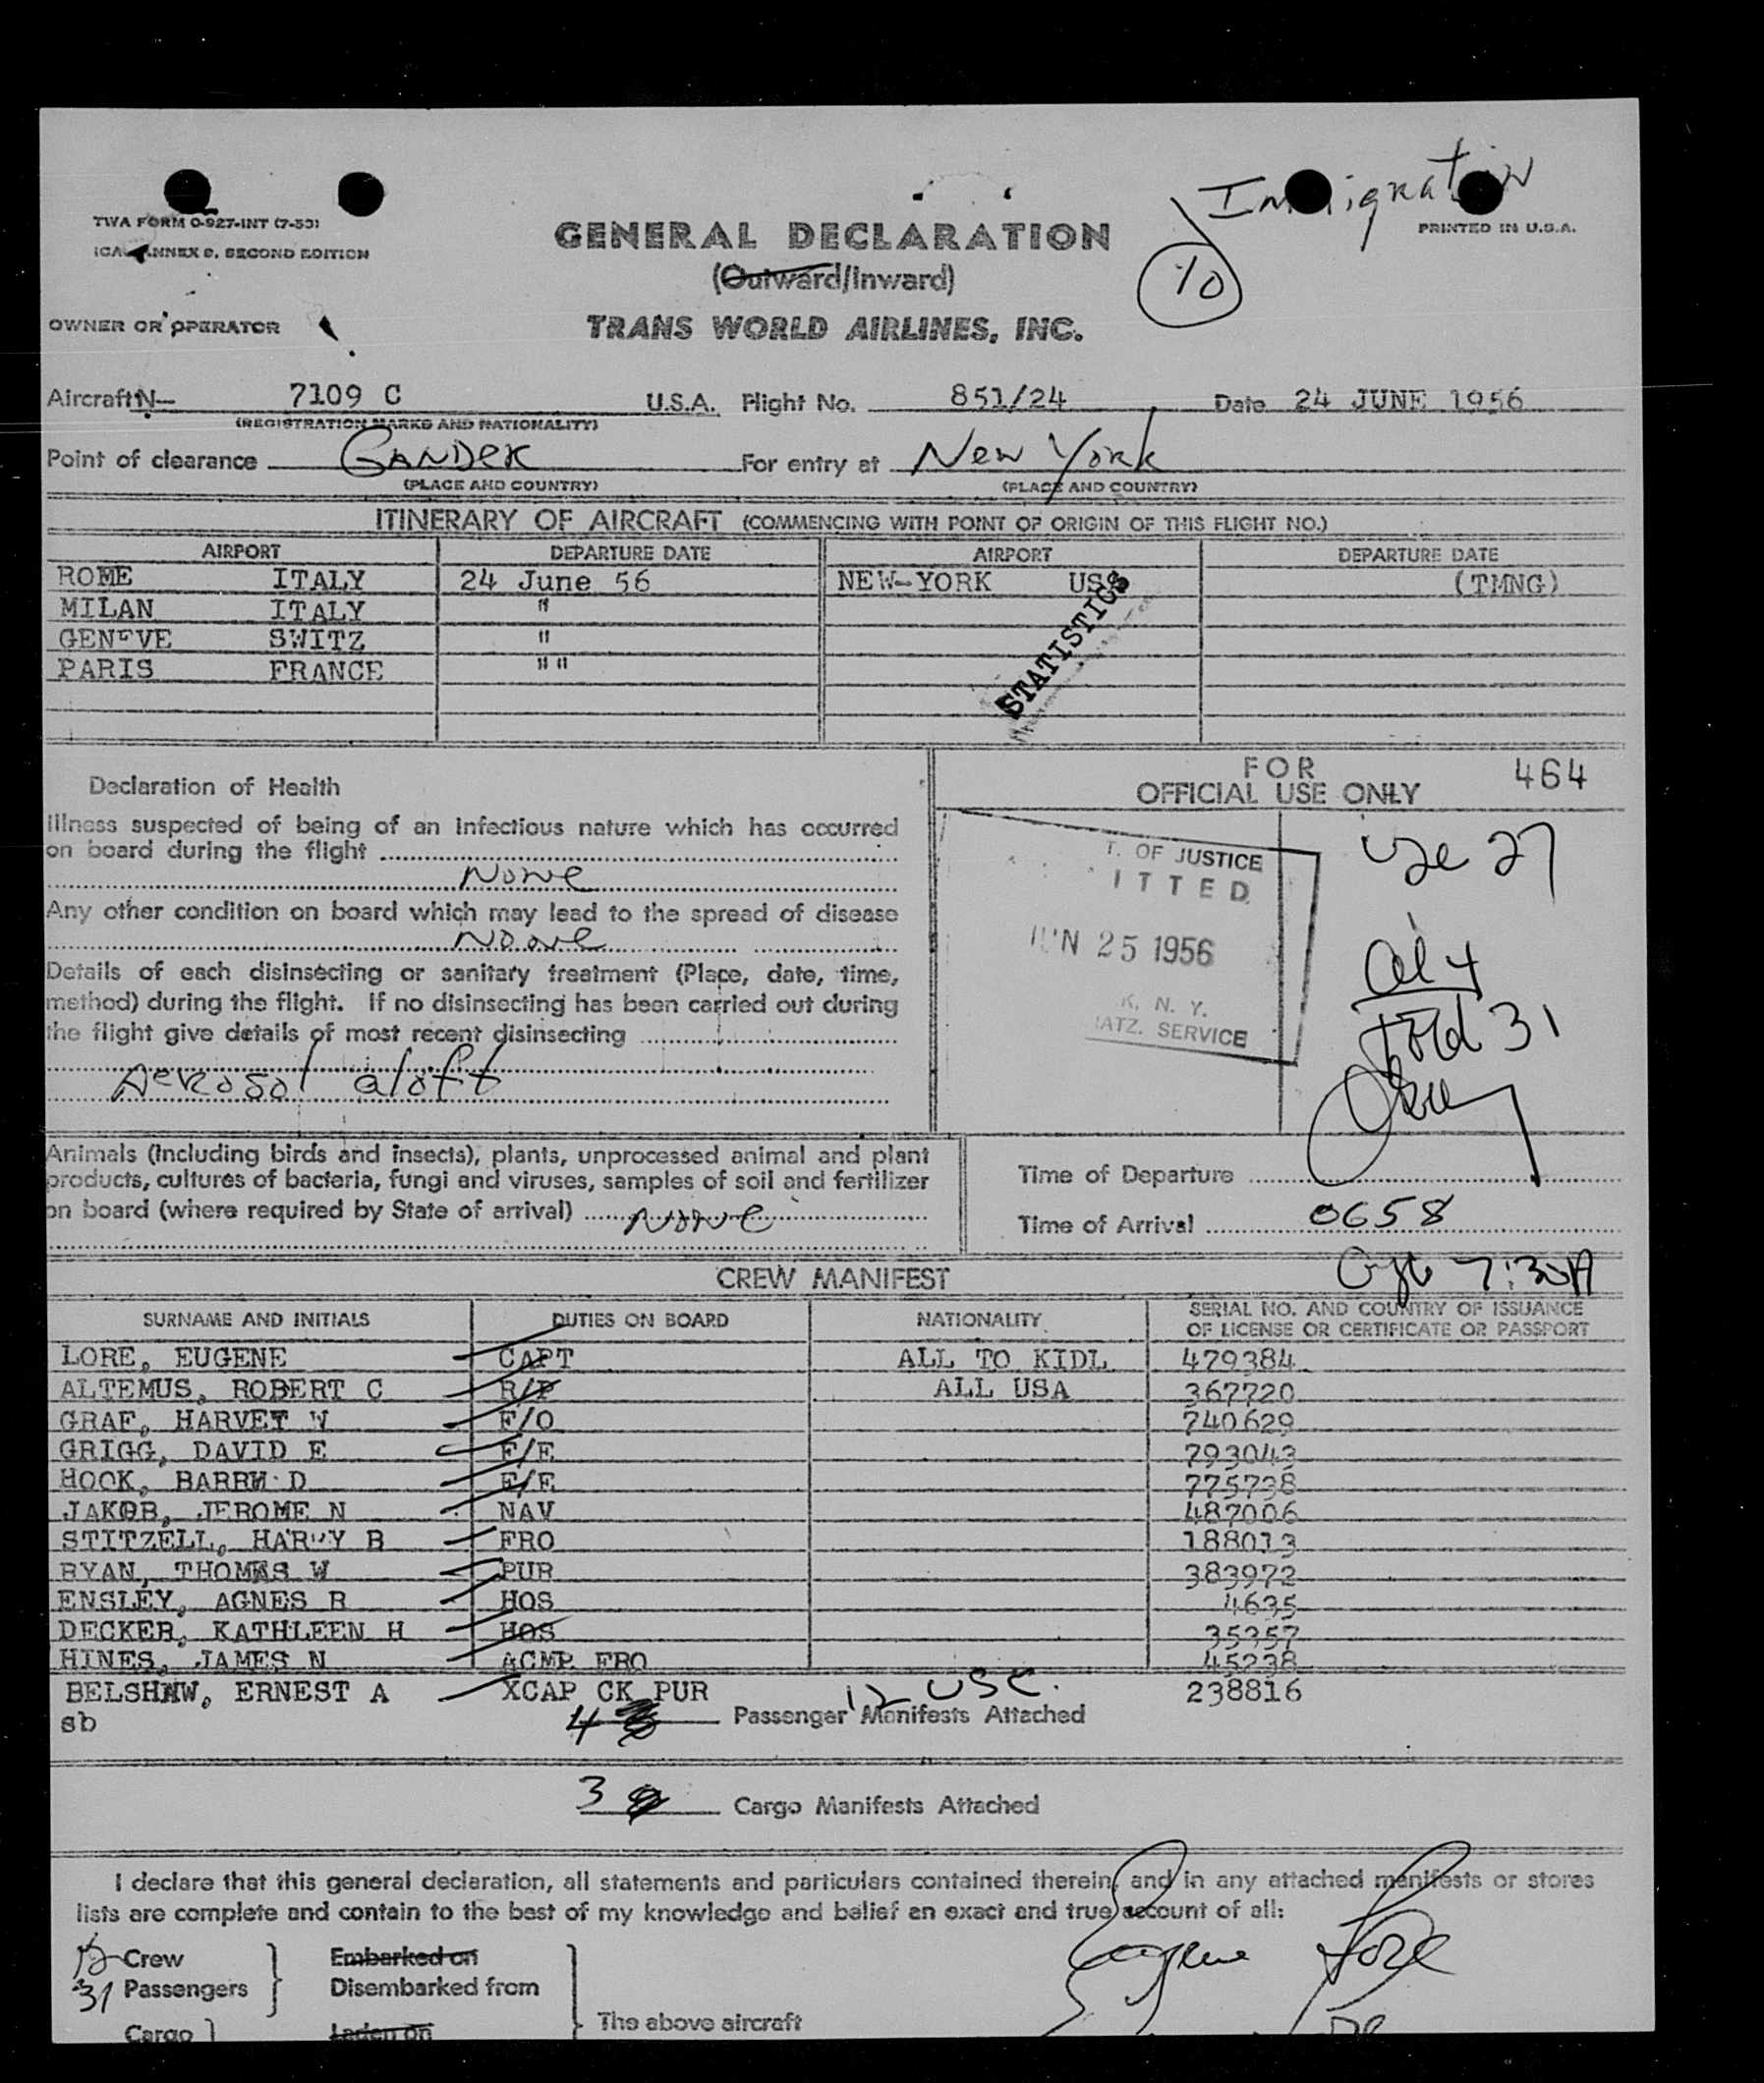 Immigration
TWA FORM O-927-INT (7-53)
ICAO ANNEX 9, SECOND EDITION
PRINTED IN U.S.A.
GENERAL DECLARATION
(Outward/Inward)
10
OWNER OR OPERATOR
TRANS WORLD AIRLINES, INC.
Aircraft N- 7109 C U.S.A. Flight No. 851/24 Date 24 JUNE 1956
(REGISTRATION MARKS AND NATIONALITY)
Point of clearance GANDER For entry at New York
(PLACE AND COUNTRY) (PLACE AND COUNTRY)
ITINERARY OF AIRCRAFT (COMMENCING WITH POINT OF ORIGIN OF THIS FLIGHT NO.)
AIRPORT DEPARTURE DATE AIRPORT DEPARTURE DATE
ROME ITALY 24 June 56 NEW-YORK US (TMNG)
MILAN ITALY "
GENEVE SWITZ "
PARIS FRANCE " "
STATISTICS
Declaration of Health
Illness suspected of being of an infectious nature which has occurred
on board during the flight
None
Any other condition on board which may lead to the spread of disease
None
Details of each disinsecting or sanitary treatment (Place, date, time,
method) during the flight. If no disinsecting has been carried out during
the flight give details of most recent disinsecting
Aerosol aloft
FOR
OFFICIAL USE ONLY
464
T. OF JUSTICE
ITTED
JUN 25 1956
K, N. Y.
ATZ. SERVICE
usc 27
al 4
Total 31
Animals (including birds and insects), plants, unprocessed animal and plant
products, cultures of bacteria, fungi and viruses, samples of soil and fertilizer
on board (where required by State of arrival) None
Time of Departure
Time of Arrival 0658
7:30A
CREW MANIFEST
SURNAME AND INITIALS DUTIES ON BOARD NATIONALITY SERIAL NO. AND COUNTRY OF ISSUANCE
OF LICENSE OR CERTIFICATE OR PASSPORT
LORE, EUGENE CAPT ALL TO KIDL 479384
ALTEMUS, ROBERT C R/P ALL USA 367720
GRAF, HARVEY W F/O 740629
GRIGG, DAVID E F/E 793043
HOOK, BARRY D F/E 775738
JAKOB, JEROME N NAV 487006
STITZELL, HARRY B FRO 188013
RYAN, THOMAS W PUR 383972
ENSLEY, AGNES R HOS 4635
DECKER, KATHLEEN H HOS 35357
HINES, JAMES N ACMP FRO 45238
BELSHAW, ERNEST A XCAP CK PUR 12 USC. 238816
sb
4 Passenger Manifests Attached
3 Cargo Manifests Attached
I declare that this general declaration, all statements and particulars contained therein, and in any attached manifests or stores
lists are complete and contain to the best of my knowledge and belief an exact and true account of all:
12 Crew Embarked on
31 Passengers Disembarked from
Eugene Lore
Cargo Laden on The above aircraft